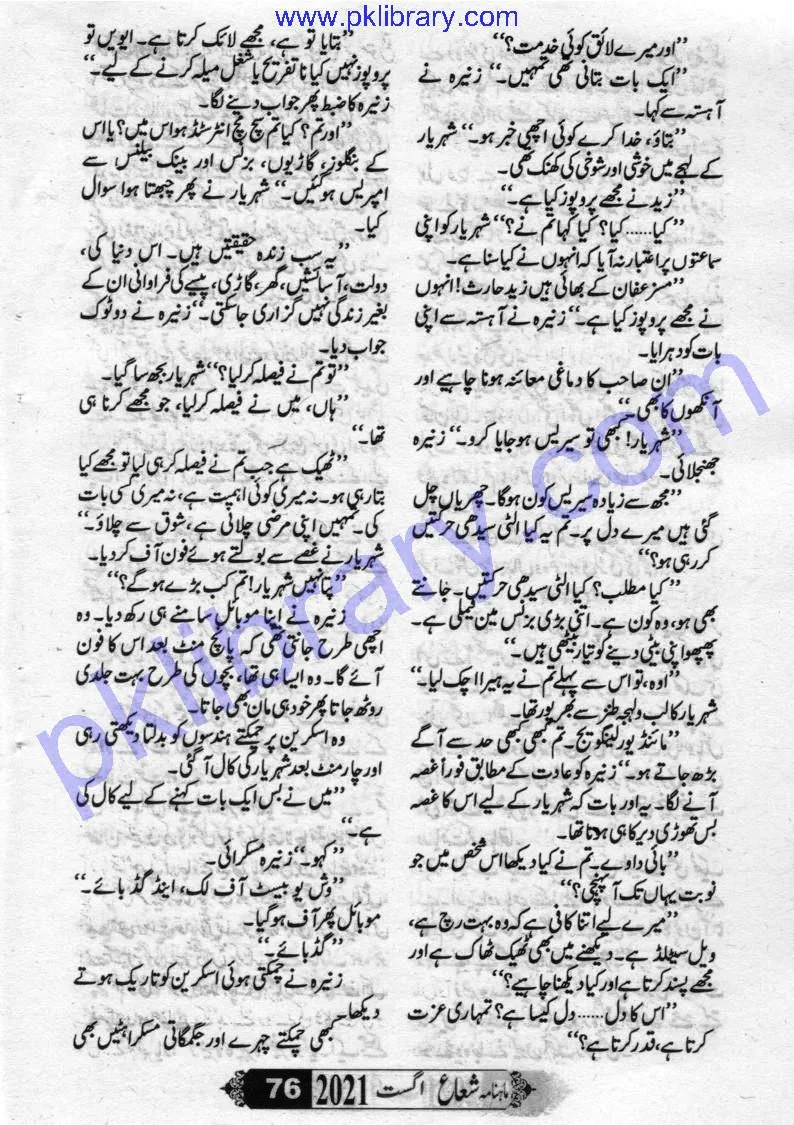 www.pklibrary.com
”اور میرے لائق کوئی خدمت؟“
”ایک بات بتانی تھی تمہیں۔“ زنیرہ نے
آہستہ سے کہا۔
”بتاؤ، خدا کرے کوئی اچھی خبر ہو۔“ شہریار
کے لہجے میں خوشی اور شوخی کی کھنک تھی۔
”زید نے مجھے پروپوز کیا ہے۔“
”کیا......کیا؟ کیا کہا تم نے؟“ شہریار کو اپنی
سماعتوں پر اعتبار نہ آیا کہ انہوں نے کیا سنا ہے۔
”مسز عفان کے بھائی ہیں زید حارث! انہوں
نے مجھے پروپوز کیا ہے۔“ زنیرہ نے آہستہ سے اپنی
بات کو دہرایا۔
”ان صاحب کا دماغی معائنہ ہونا چاہیے اور
آنکھوں کا بھی۔“
”شہریار! کبھی تو سیریس ہو جایا کرو۔“ زنیرہ
جھنجلائی۔
”مجھ سے زیادہ سیریس کون ہوگا۔ چھریاں چل
گئی ہیں میرے دل پر۔ تم یہ کیا الٹی سیدھی حرکتیں
کر رہی ہو؟“
”کیا مطلب؟ کیا الٹی سیدھی حرکتیں۔ جانتے
بھی ہو، وہ کون ہے۔ اتنی بڑی بزنس مین فیملی ہے۔
پھپھو اپنی بیٹی دینے کو تیار بیٹھی ہیں۔“
”اوہ، تو اس سے پہلے تم نے یہ ہیرا اچک لیا۔“
شہریار کا لب و لہجہ طنز سے بھرپور تھا۔
”مائنڈ یور لینگویج۔ تم بھی کبھی حد سے آگے
بڑھ جاتے ہو۔“ زنیرہ کو عادت کے مطابق فوراً غصہ
آنے لگا۔ یہ اور بات کہ شہریار کے لیے اس کا غصہ
بس تھوڑی دیر کا ہی ہوتا تھا۔
”بائی داوے۔ تم نے کیا دیکھا اس شخص میں جو
نوبت یہاں تک آ پہنچی؟“
”میرے لیے اتنا کافی ہے کہ وہ بہت رچ ہے،
ویل سیٹلڈ ہے۔ دیکھنے میں بھی ٹھیک ٹھاک ہے اور
مجھے پسند کرتا ہے اور کیا دیکھنا چاہیے؟“
”اس کا دل...... دل کیسا ہے؟ تمہاری عزت
کرتا ہے، قدر کرتا ہے؟“
”بتایا تو ہے، مجھے لائک کرتا ہے۔ ایویں تو
پروپوز نہیں کیا نا تفریح یا شغل میلہ کرنے کے لیے۔“
زنیرہ کا ضبط پھر جواب دینے لگا۔
”اور تم؟ کیا تم سچ مچ انٹرسٹڈ ہو اس میں؟ یا اس
کے بنگلوز، گاڑیوں، بزنس اور بینک بیلنس سے
امپریس ہوگئیں۔“ شہریار نے پھر چبھتا ہوا سوال
کیا۔
”یہ سب زندہ حقیقتیں ہیں۔ اس دنیا کی،
دولت، آسائشیں، گھر، گاڑی، پیسے کی فراوانی ان کے
بغیر زندگی نہیں گزاری جاسکتی۔“ زنیرہ نے دوٹوک
جواب دیا۔
”تو تم نے فیصلہ کر لیا؟“ شہریار بجھ سا گیا۔
”ہاں، میں نے فیصلہ کر لیا، جو مجھے کرنا ہی
تھا۔“
”ٹھیک ہے جب تم نے فیصلہ کر ہی لیا تو مجھے کیا
بتا رہی ہو۔ نہ میری کوئی اہمیت ہے، نہ میری کی بات
کی۔ تمہیں اپنی مرضی چلانی ہے، شوق سے چلاؤ۔“
شہریار نے غصے سے بولتے ہوئے فون آف کر دیا۔
”پتا نہیں شہریار! تم کب بڑے ہو گے؟“
زنیرہ نے اپنا موبائل سامنے ہی رکھ دیا۔ وہ
اچھی طرح جانتی تھی کہ پانچ منٹ بعد اس کا فون
آئے گا۔ وہ ایسا ہی تھا، بچوں کی طرح بہت جلدی
روٹھ جاتا پھر خود ہی مان بھی جاتا۔
وہ اسکرین پر چمکتے ہندسوں کو بدلتا دیکھتی رہی
اور چار منٹ بعد شہریار کی کال آ گئی۔
”میں نے بس ایک بات کہنے کے لیے کال کی
ہے۔“
”کہو۔“ زنیرہ مسکرائی۔
”وش یو بیسٹ آف لک، اینڈ گڈ بائے۔“
موبائل پھر آف ہو گیا۔
”گڈ بائے۔“
زنیرہ نے چمکتی ہوئی اسکرین کو تاریک ہوتے
دیکھا۔
کبھی چمکتے چہرے اور جگمگاتی مسکراہٹیں بھی
ماہنامہ شعاع اگست 2021 76
pklibrary.com